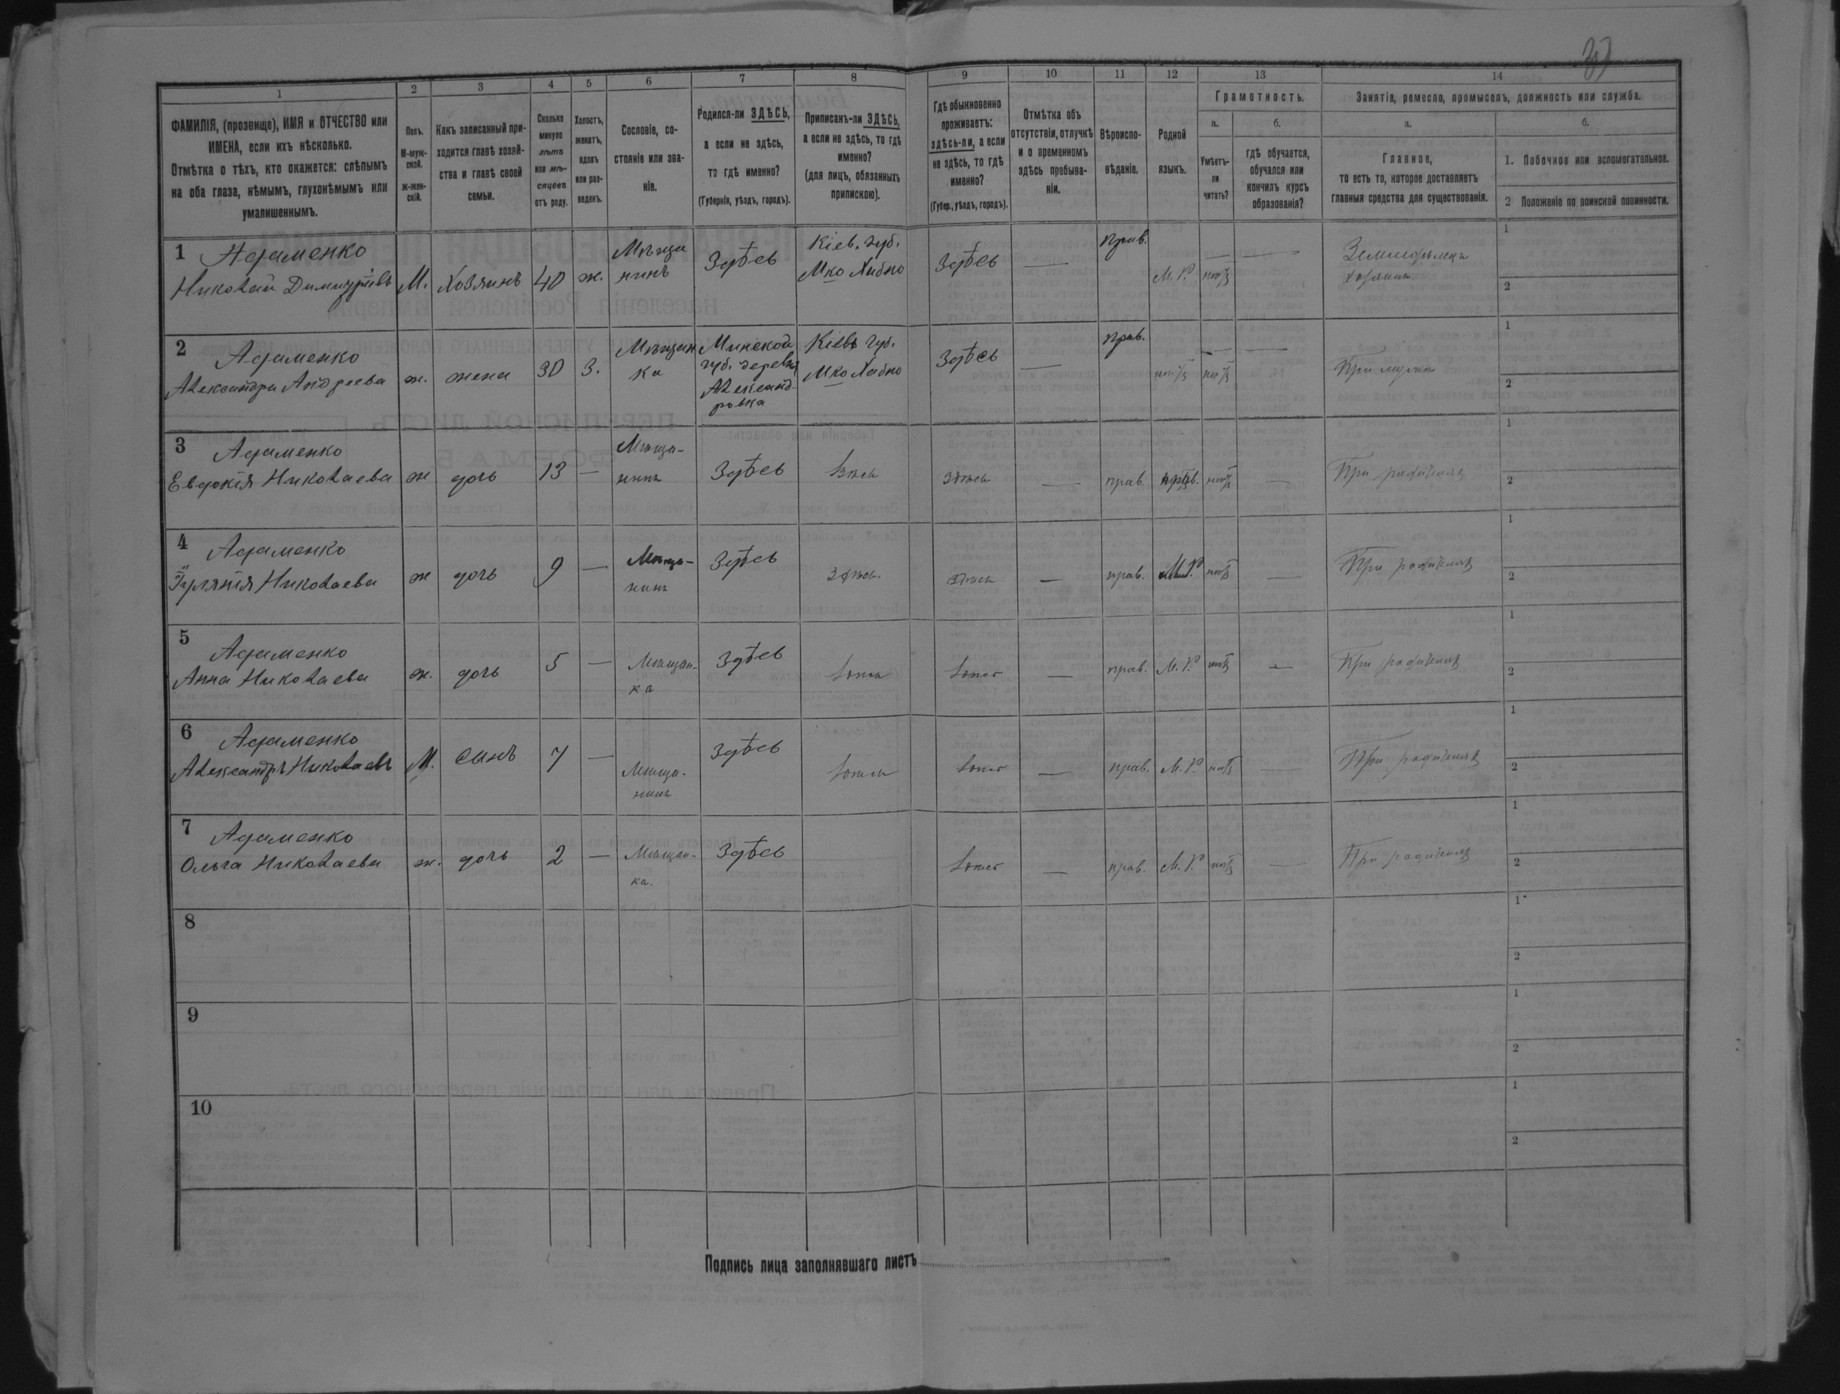 37
1
2
3
4
5
6
7
8
9
10
11
12
13
14
ФАМИЛІЯ, (прозвище), ИМЯ и ОТЧЕСТВО или
ИМЕНА, если ихъ нѣсколько.
Отмѣтка о тѣхъ, кто окажется: слѣпымъ
на оба глаза, нѣмымъ, глухонѣмымъ или
умалишеннымъ.
Полъ.
М-муж-
ской.
ж-жен-
скій.
Какъ записанный при-
ходится главѣ хозяй-
ства и главѣ своей
семьи.
Сколько
минуло
лѣтъ
или мѣ-
сяцевъ
отъ роду.
Холостъ,
женатъ,
вдовъ
или раз-
веденъ.
Сословіе, со-
стояніе или зва-
ніе.
Родился-ли ЗДѢСЬ,
а если не здѣсь,
то гдѣ именно?
(Губернія, уѣздъ, городъ).
Приписанъ-ли ЗДѢСЬ,
а если не здѣсь, то гдѣ
именно?
(для лицъ, обязанныхъ
припискою).
Гдѣ обыкновенно
проживаетъ:
здѣсь-ли, а если
не здѣсь, то гдѣ
именно?
(Губер., уѣздъ, городъ).
Отмѣтка объ
отсутствіи, отлучкѣ
и о временномъ
здѣсь пребыва-
ніи.
Вѣроиспо-
вѣданіе.
Родной
языкъ.
Грамотность.
а.
Умѣетъ-
ли
читать?
б.
гдѣ обучается,
обучался или
кончилъ курсъ
образованія?
Занятіе, ремесло, промыселъ, должность или служба.
а.
Главное,
то есть то, которое доставляетъ
главныя средства для существованія.
б.
1. Побочное или вспомогательное.
2 Положеніе по воинской повинности.
1 Адаменко
Николай Димитріевъ М. Хозяинъ 40 ж. Мѣщанинъ Здѣсь Кіев. губ. Мко Хабно Здѣсь — Прав. М. Р. нѣтъ — Земледѣлецъ хозяинъ
1
2
2 Адаменко
Александра Андреева ж. жена 30 З. Мѣщанка Минской губ. деревня Александровка Кіевъ губ. Мко Хабно Здѣсь — Прав. нѣтъ — При мужѣ
1
2
3 Адаменко
Евдокія Николаева ж дочь 13 — Мѣща- Здѣсь Здѣсь Здѣсь — прав. нѣтъ — При родителяхъ
1
2
4 Адаменко
Николаева ж дочь 9 — Мѣща- Здѣсь Здѣсь Здѣсь — прав. М. Р. нѣтъ — При родителяхъ
1
2
5 Адаменко
Анна Николаева ж. дочь 5 — Мѣщан-ка Здѣсь — прав. М. Р. нѣтъ — При родителяхъ
1
2
6 Адаменко
Александръ Николаевъ М. сынъ 7 — Мѣща-нинъ Здѣсь — прав. М. Р. нѣтъ — При родителяхъ
1
2
7 Адаменко
Ольга Николаева ж. дочь 2 — Мѣщан-ка. Здѣсь — прав. М. Р. нѣтъ — При родителяхъ
1
2
8
1
2
9
1
2
10
1
2
Подпись лица заполнявшаго листъ